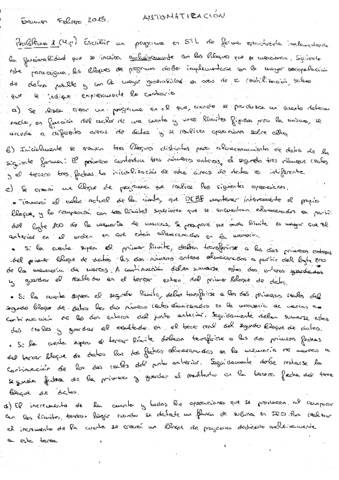 Examen Febrero 2015. AUTOMATIZACION
Problema 1 (4p) Escribir un programa en STL de forma estructurada implementando
la funcionalidad que se incluya exclusivamente con los bloques que se mencionan. Siguiendo
este paradigma, los bloques de programa deben implementarse con la mayor encapsulación
de datos posible y con la mayor generalidad en aras de su reutilización, salvo
que se indique expresamente lo contrario
a) Se desea crear un programa en el que, cuando se produzca un evento determi-
nado, en función del valor de una cuenta y unos límites fijados para la misma, se
acceda a diferentes áreas de datos y se realicen operaciones sobre ellas.
b) Inicialmente se crearán tres bloques distintos para almacenamiento de datos de la
siguiente forma: El primero contendrá tres números enteros, el segundo tres números reales
y el tercero tres fechas. La inicialización de estas áreas de datos es indiferente.
c) Se creará un bloque de programa que realice las siguientes operaciones.
• Tomará el valor actual de la cuenta, que DEBE mantener internamente el propio
bloque, y lo comparará con tres límites superiores que se encuentran almacenados a partir
del byte 100 de la memoria de marcas. Se presupone que cada límite es mayor que el
anterior en el orden en que están almacenados en la memoria.
• Si la cuenta supera el primer límite, deben transferirse a los dos primeros enteros
del primer bloque de datos los dos números enteros almacenados a partir del byte
de la memoria de marcas. A continuación deben sumarse estos dos enteros guardados
y guardar el resultado en el tercer entero del primer bloque de datos.
• Si la cuenta supera el segundo límite, deben transferirse a los dos primeros reales del
segundo bloque de datos los dos números reales almacenados en la memoria de marcas a
continuación de los dos enteros del punto anterior. Seguidamente deben sumarse estos
dos reales y guardar el resultado en el tercer real del segundo bloque de datos.
• Si la cuenta supera el tercer límite deberán transferirse a las dos primeras fechas
del tercer bloque de datos las dos fechas almacenadas en la memoria de marcas a
continuación de los dos reales del punto anterior. Seguidamente debe restarse la
segunda fecha de la primera y guardar el resultado en la tercera fecha del tercer
bloque de datos.
d) El incremento de la cuenta y todas las operaciones que se producen al comparar
con los límites, tendrán lugar cuando se detecte un flanco de subida en Para realizar
el incremento de la cuenta se creará un bloque de programa dedicado exclusivamente
a esta tarea.